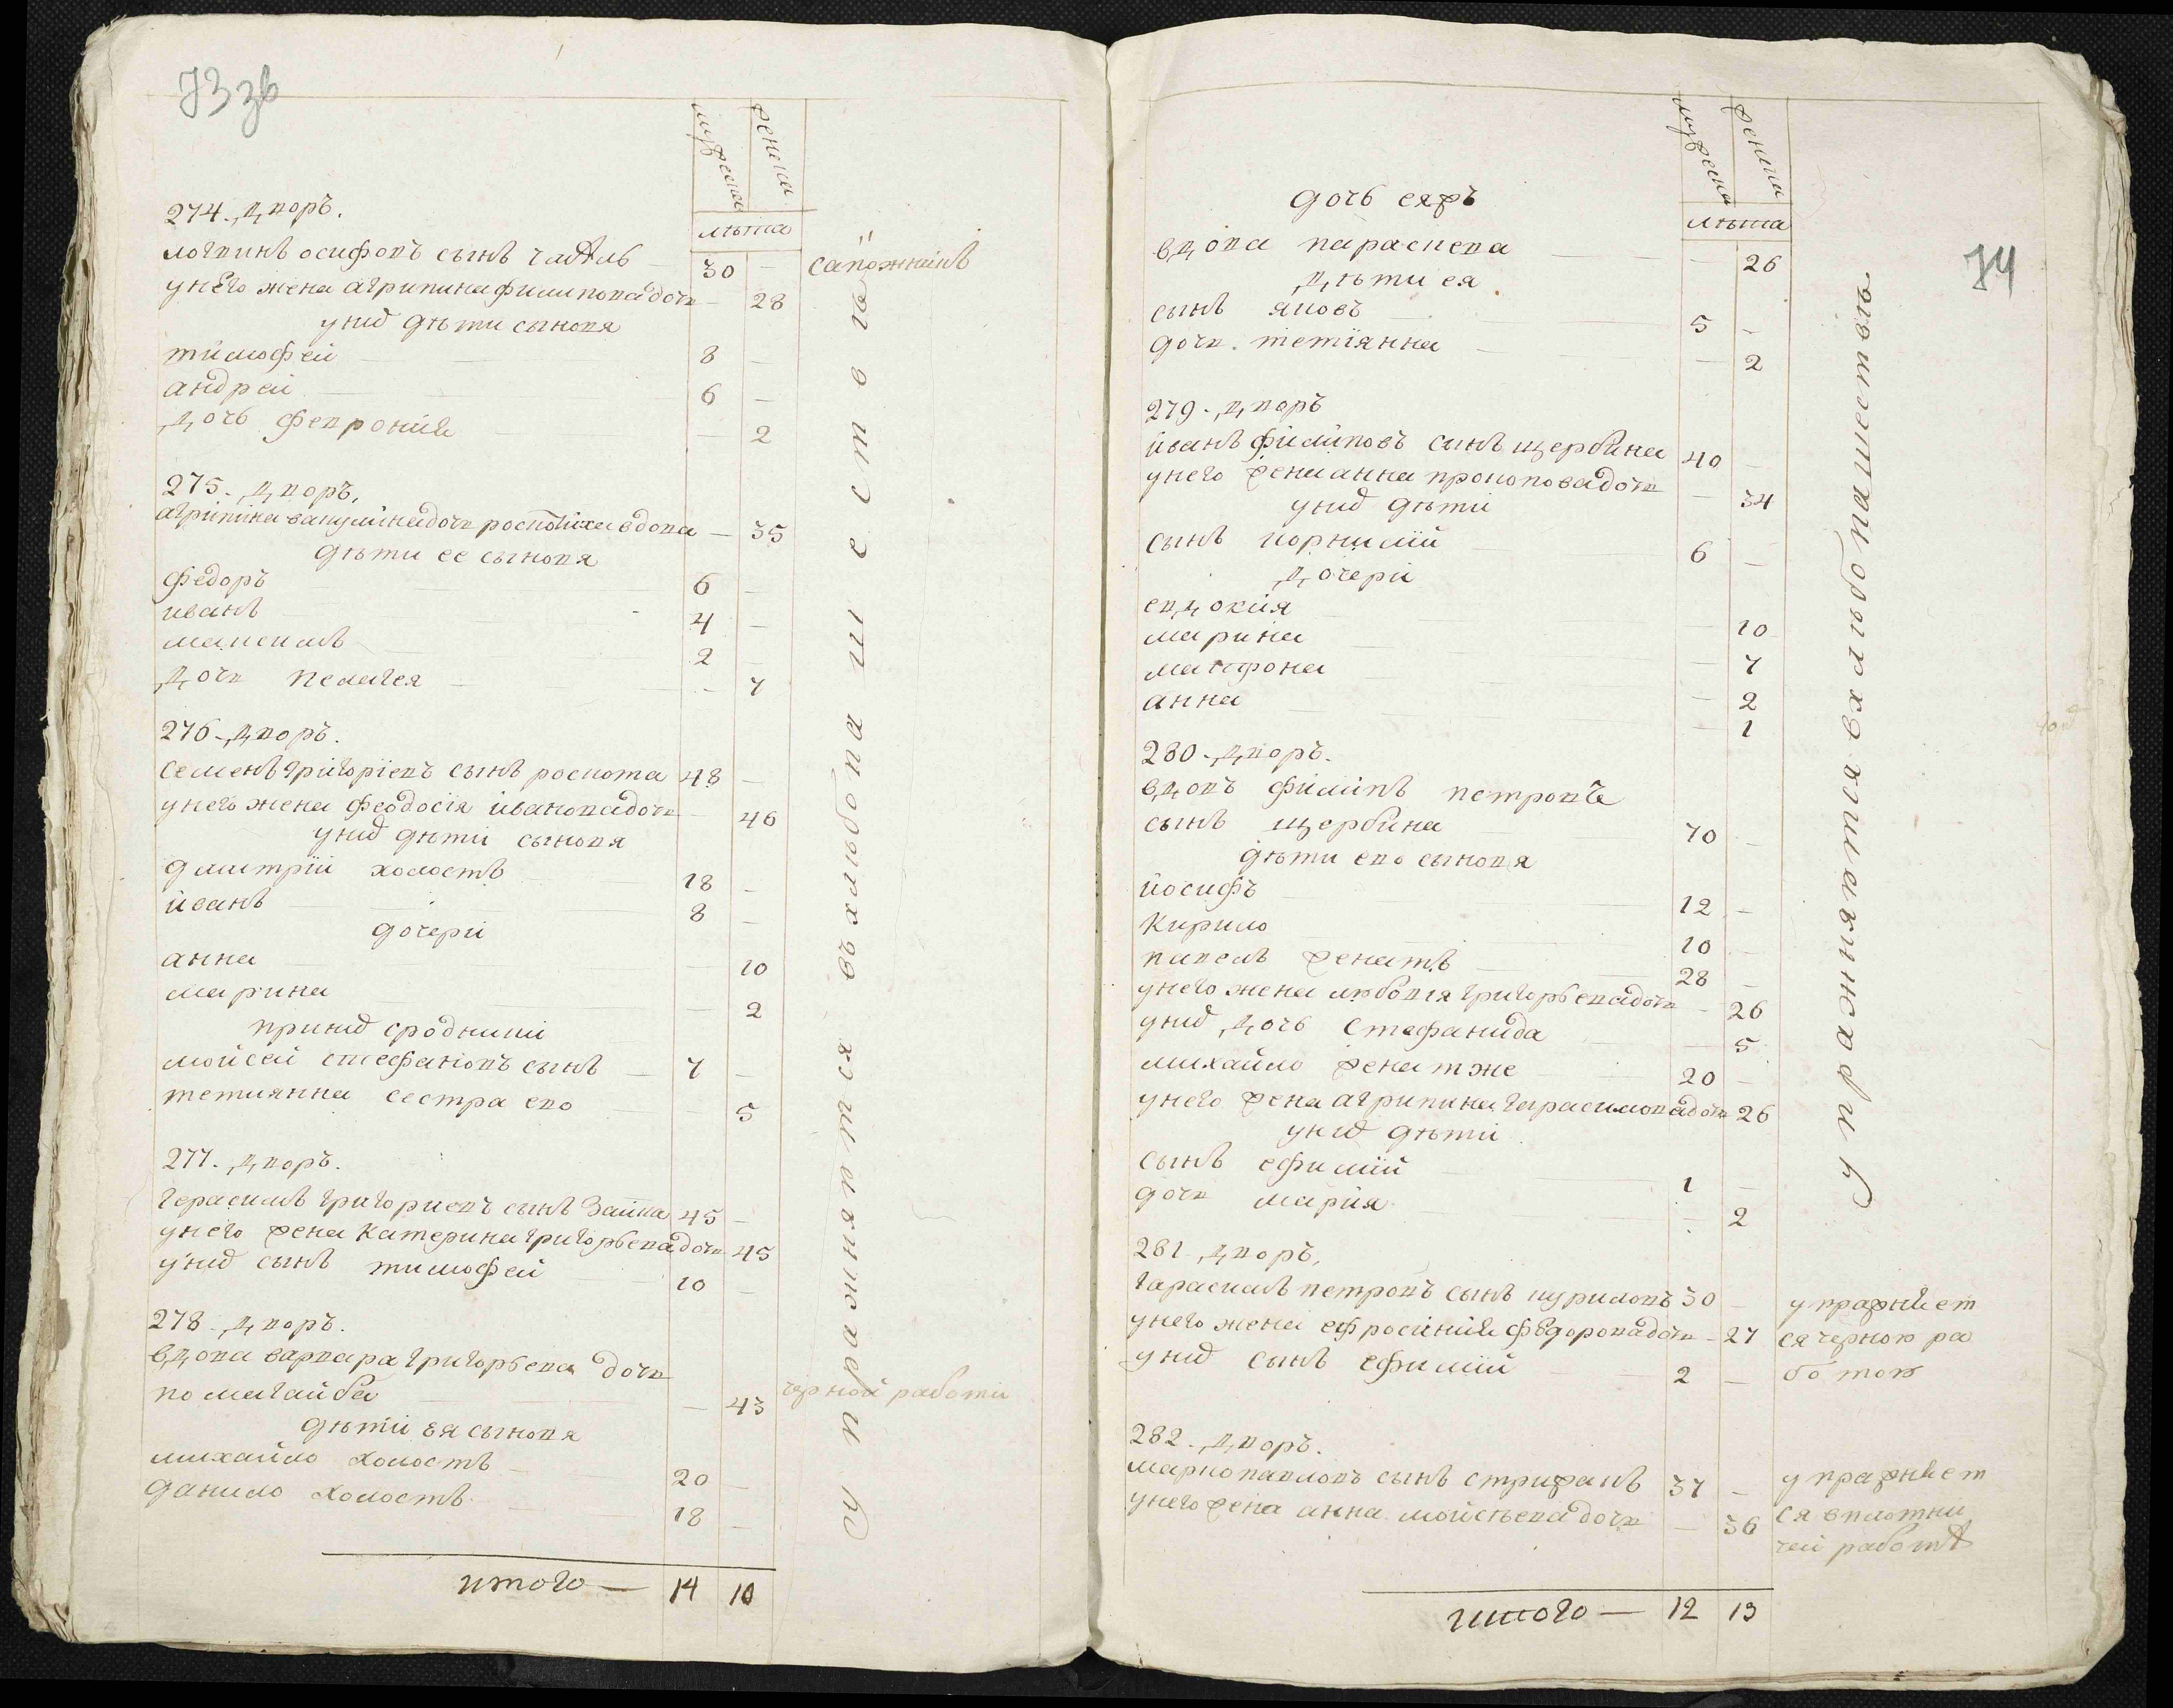 73 зв
мужеска
женска
лѣта
274. дворъ.
логвинъ осифовъ сынъ
30 — сапожникъ
унего жена агрипина филиповадочь — 28
унид дѣти сыновя
тимофей 8 —
андрей 6 —
дочь феврония — 2
275. дворъ.
агрипина вакулинадочь вдова — 35
дѣти ее сыновя
федоръ 6 —
иванъ 4 —
максимъ 2 —
дочь пелагея — 7
276. дворъ.
семенъ григориевъ сынъ роспота 48 —
унего жена феодосїя ивановадочь — 46
унид дѣти сыновя
дмитрїй холостъ 18 —
иванъ 8 —
дочери
анна — 10
марина — 2
принид сродники
мойсей стефановъ сынъ 7 —
тетиянна сестра ево 5
277. дворъ.
герасимъ григориевъ сынъ Заика 45 —
унего жена катерина григорьевадочь 45
унид сынъ тимофей 10 —
278. дворъ.
вдова варвара григорьева дочь
помагайба — 43 черной работи
дѣти ея сыновя
михайло холостъ 20 —
данило холостъ 18 —
упражняются въ хлѣбопашествѣ
итого — 14 10
74
мужеска
женска
лѣта
дочь еяжъ
вдова параскева — 26
дѣти ея
сынъ яковъ 5 —
дочь тетїянна — 2
279. дворъ
иванъ филиповъ синъ щербина 40 —
унего жена анна прокоповадочь — 34
унид дѣти
сынъ корнилїй 6 —
дочери
евдокия — 10
марина — 7
матфона — 2
анна — 1
280. дворъ.
вдовъ филипъ петровъ
сынъ щербина 70 —
дѣти ево сыновя
иосифъ 12 —
кирило 10 —
павелъ женатъ 28 —
унего жена любовія григорьевадочь — 26
унид дочь стефанида — 5
михайло женатже 20 —
унего жена агрипина гарасимовадочь 26
унид дѣти
сынъ ефимїй 1 —
дочь мария — 2
281. дворъ.
гарасимъ петровъ сынъ куриловъ 30 — упражнает
унего жена ефросиния фѣдоровадочь — 27 ся черною ра
унид сынъ ефимїй 2 — ботою
282. дворъ.
марко павловъ сынъ стрижакъ 37 — упражнает
унего жена анна мойсѣевадочь — 36 ся вплотни
чей работѣ
упражняются вхлѣбопашествѣ
итого — 12 13